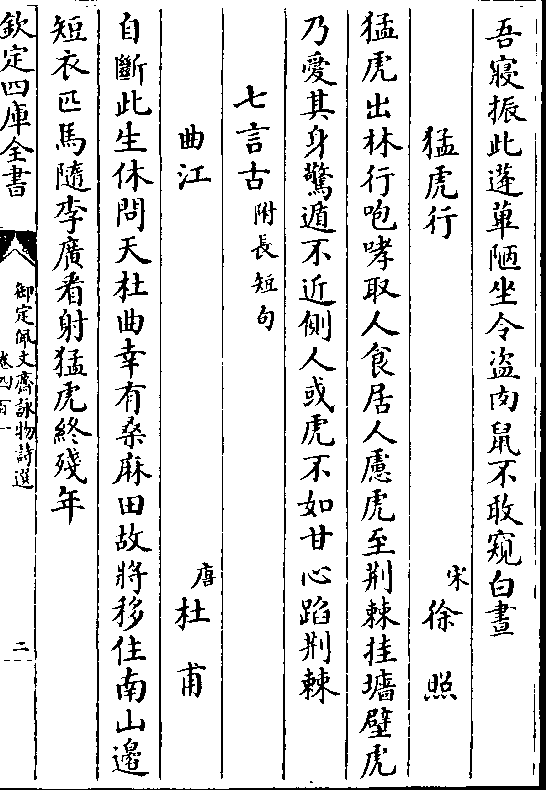 吾寢振此蓬蓽陋坐令盜肉鼠不敢窺白晝
猛虎行
宋徐照
猛虎出林行咆哮取人食居人慮虎至荆棘挂墻壁虎
乃愛其身驚遁不近側人或虎不如甘心蹈荆棘
七言古附長短句
曲江
唐杜甫
自斷此生休問天杜曲幸有桑麻田故將移住南山邊
短衣匹馬隨李廣看射猛虎終殘年
欽定四庫全書
御定佩文齋詠物詩選
卷四百一
二